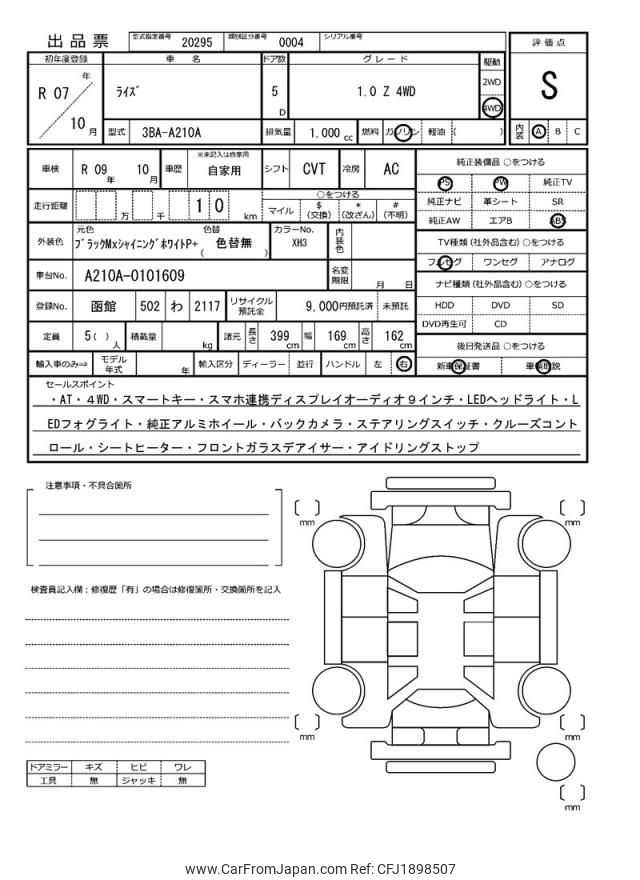 出品票 型式指定番号 20295 類別区分番号 0004 シリアル番号
評価点
S
内装 A B C
初年度登録 車名 ドア数 グレード 駆動
R 07 年 10 月 ﾗｲｽﾞ 5 D 1.0 Z 4WD 2WD 4WD
型式 3BA-A210A 排気量 1.000 cc 燃料 ガソリン 軽油 ( )
車検 R 09 年 10 月 車歴 ※未記入は自家用 自家用 シフト CVT 冷房 AC
走行距離 万 千 1 0 km ○をつける
マイル $ (交換) * (改ざん) # (不明)
外装色 元色 ﾌﾞﾗｯｸMxｼｬｲﾆﾝｸﾞﾎﾜｲﾄP+ 色替 ( 色替無 ) カラーNo. XH3 内装色
車台No. A210A-0101609 名変期限 月 日
登録No. 函館 502 わ 2117 リサイクル預託金 9,000円預託済 未預託
定員 5( ) 人 積載量 kg 諸元 長さ 399 cm 幅 169 cm 高さ 162 cm
輸入車のみ⇒ モデル年式 年 輸入区分 ディーラー 並行 ハンドル 左 右
純正装備品 ○をつける
PS PW 純正TV
純正ナビ 革シート SR
純正AW エアB ABS
TV種類 (社外品含む) ○をつける
フルセグ ワンセグ アナログ
ナビ種類 (社外品含む) ○をつける
HDD DVD SD
DVD再生可 CD
後日発送品 ○をつける
新車保証書 車輌取説
セールスポイント
・AT・4WD・スマートキー・スマホ連携ディスプレイオーディオ9インチ・LEDヘッドライト・L
EDフォグライト・純正アルミホイール・バックカメラ・ステアリングスイッチ・クルーズコント
ロール・シートヒーター・フロントガラスデアイサー・アイドリングストップ
注意事項・不具合箇所
検査員記入欄：修復歴「有」の場合は修復箇所・交換箇所を記入
ドアミラー キズ ヒビ ワレ
工具 無 ジャッキ 無
[ ] mm [ ] mm
[ ] mm [ ] mm
[ ] mm
www.CarFromJapan.com Ref: CFJ1898507